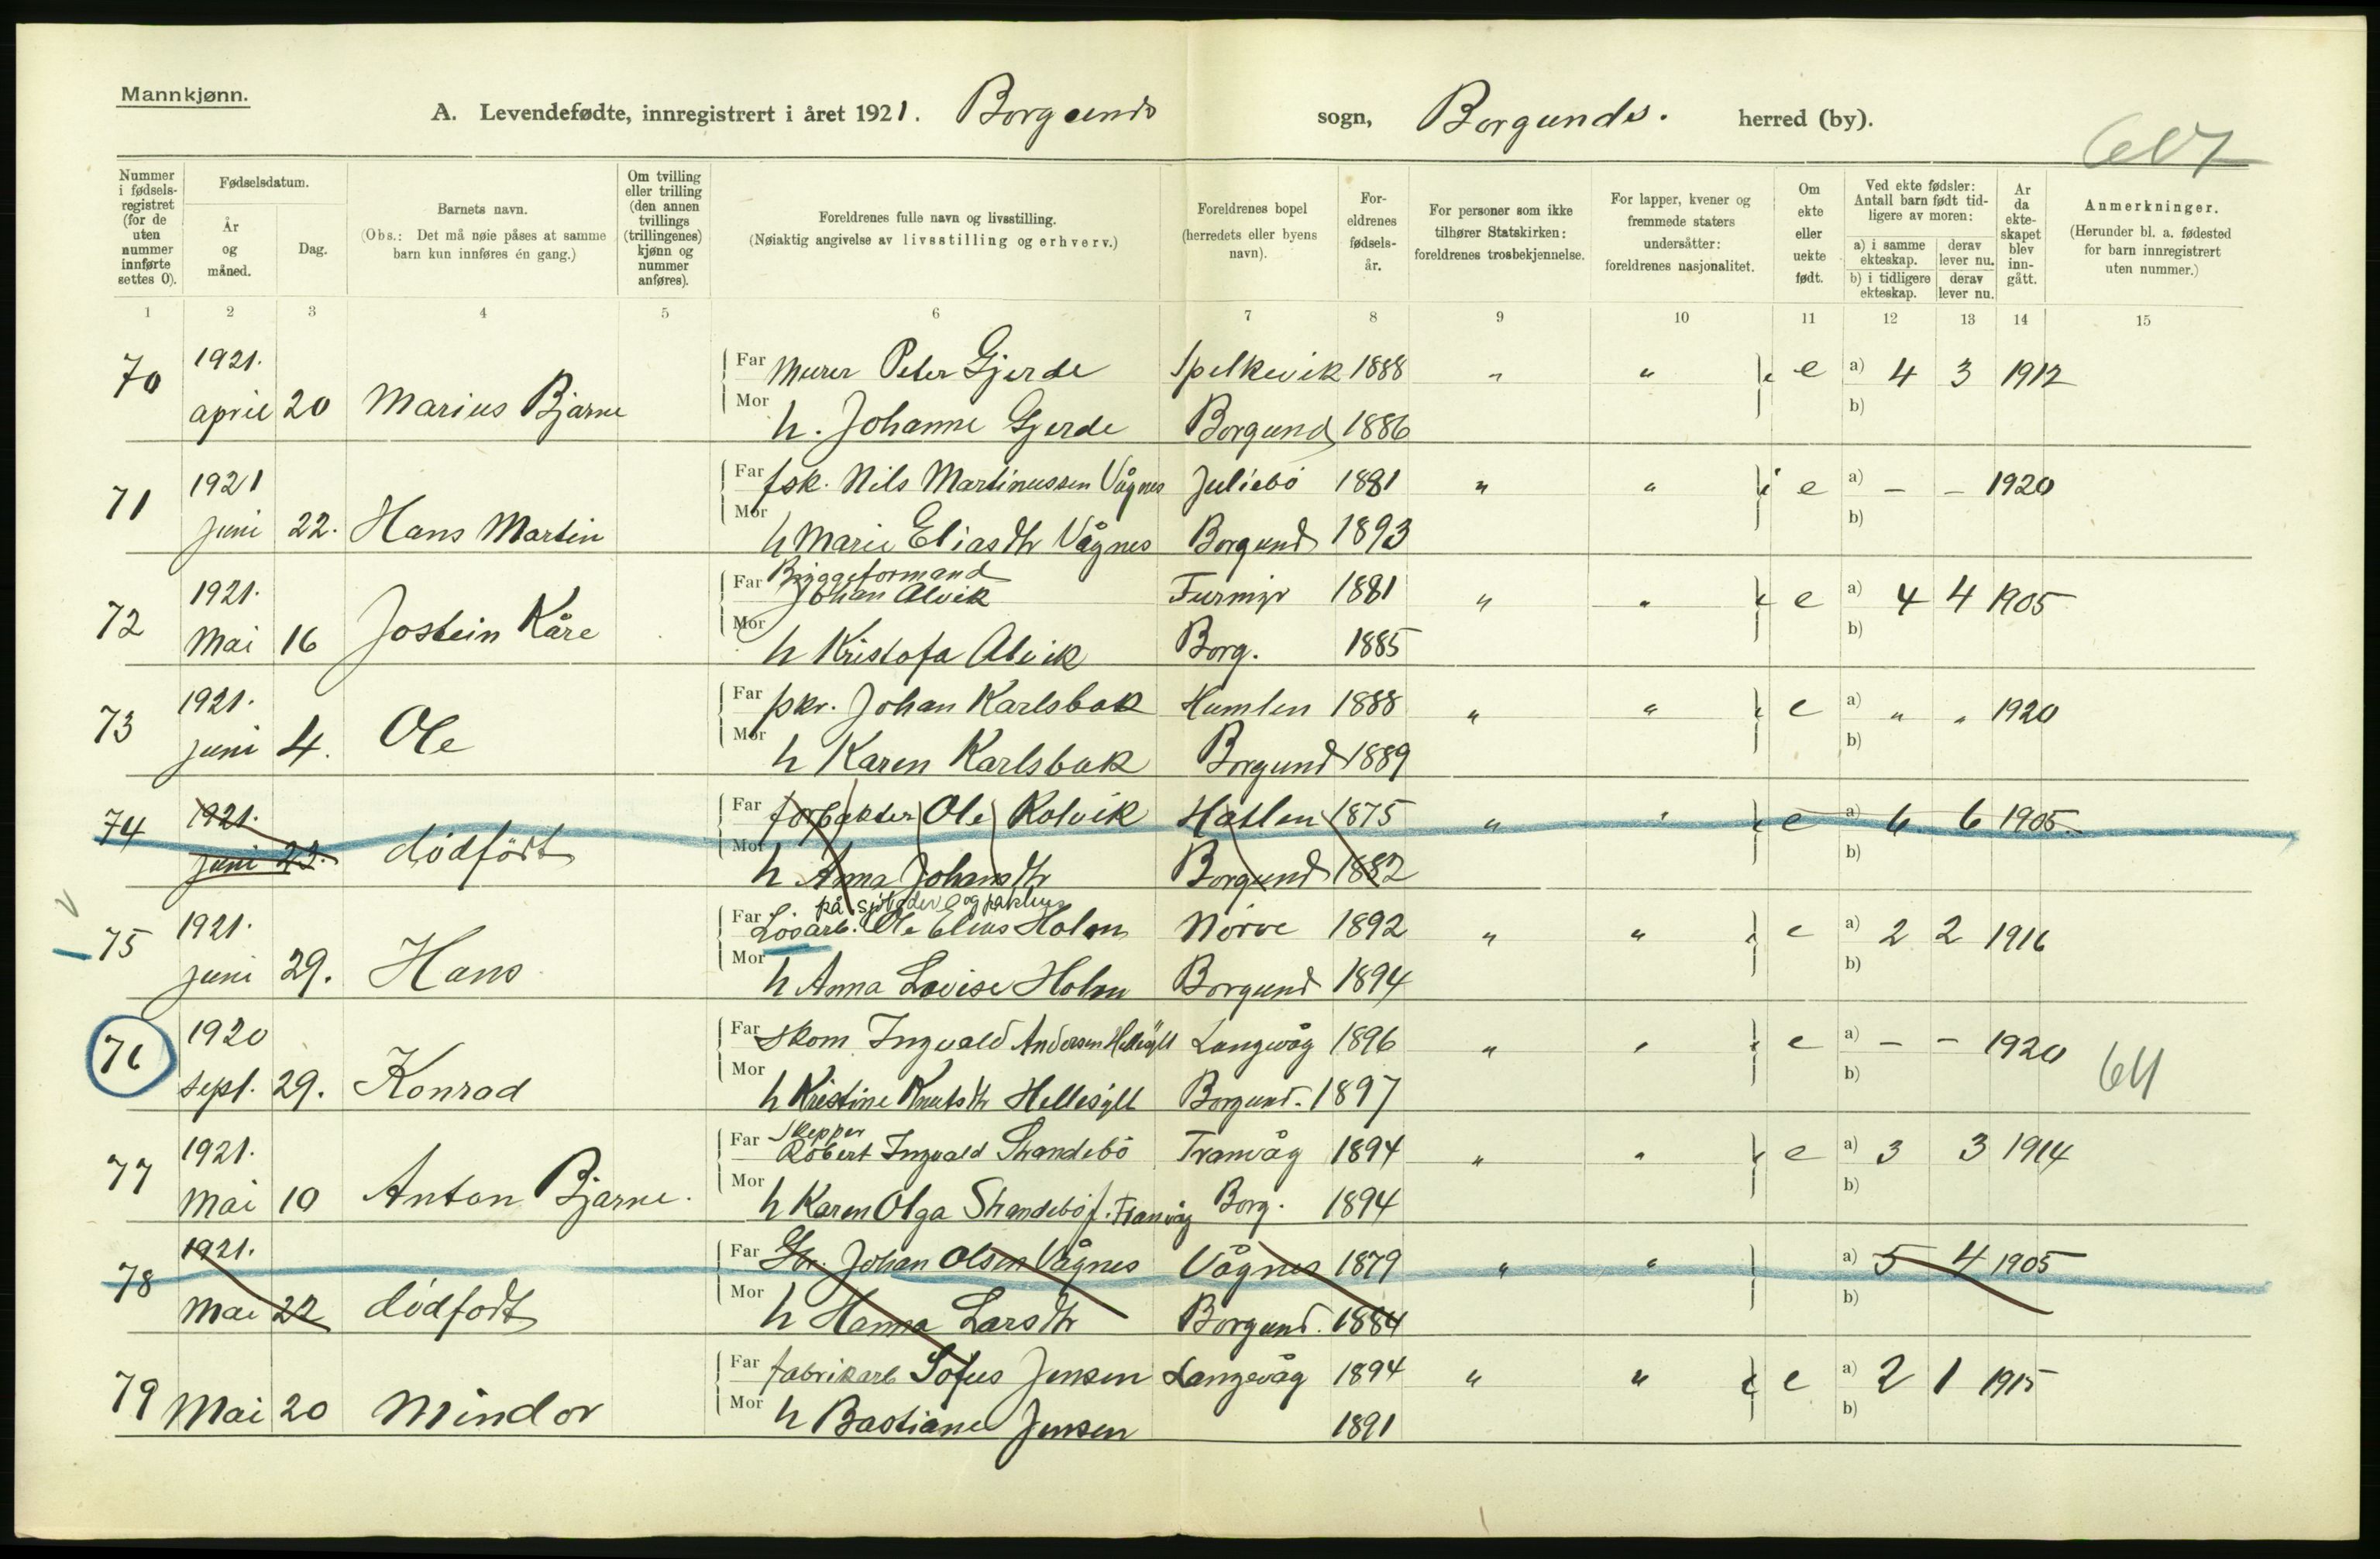 Mannkjønn.
A. Levendefødte, innregistrert i året 1921. Borgunds sogn, Borgunds. herred (by).
607
Nummer i fødselsregistret (for de uten nummer innførte settes 0).
Fødselsdatum.
År og måned.
Dag.
Barnets navn.
(Obs.: Det må nøie påses at samme barn kun innføres én gang.)
Om tvilling eller trilling (den annen tvillings (trillingenes) kjønn og nummer anføres).
Foreldrenes fulle navn og livsstilling.
(Nøiaktig angivelse av livsstilling og erhverv.)
Foreldrenes bopel (herredets eller byens navn).
Foreldrenes fødselsår.
For personer som ikke tilhører Statskirken: foreldrenes trosbekjennelse.
For lapper, kvener og fremmede staters undersåtter: foreldrenes nasjonalitet.
Om ekte eller uekte født.
Ved ekte fødsler: Antall barn født tidligere av moren:
a) i samme ekteskap. derav lever nu.
b) i tidligere ekteskap. derav lever nu.
År da ekteskapet blev inngått.
Anmerkninger.
(Herunder bl. a. fødested for barn innregistrert uten nummer.)
1 2 3 4 5 6 7 8 9 10 11 12 13 14 15
70 1921. Far Murer Peter Gjerde Spelkevik 1888 " " e a) 4 3 1912
april 20 Marius Bjarne Mor h. Johanne Gjerde Borgund 1886 b)
71 1921 Far fsk. Nils Martinussen Vågnes Juliebö 1881 " " e a) - - 1920
juni 22. Hans Martin Mor h Marie Eliasdtr Vågnes Borgund 1893 b)
72 1921. Far Bryggeformand
Johan Alvik Furmyr 1881 " " e a) 4 4 1905
Mai 16 Jostein Kåre Mor h Kristofa Alvik Borg. 1885 b)
73 1921. Far pkr. Johan Karlsbak Humlen 1888 " " e a) " " 1920
juni 4. Ole Mor h Karen Karlsbak Borgund 1889 b)
74 1921. Far forpakter Ole Kolvik Hatlen 1875 " " e a) 6 6 1905.
juni 23. dödfödt Mor h Anna Johansdtr Borgund 1882 b)
på sjöboder og pakhus
75 1921. Far Løsarb. Ole Elias Holm Nörve 1892 " " e a) 2 2 1916
juni 29. Hans Mor h Anna Lovise Holm Borgund 1894 b)
76 1920 Far Skom. Ingvald Andersen Hellesylt Langevåg 1896 " " e a) - - 1920 64
sept. 29. Konrad Mor h Kristine Knutsdtr Hellesylt Borgund. 1897 b)
77 1921. Far Skepper
Robert Ingvald Strandebö Tranvåg 1894 " " e a) 3 3 1914
Mai 10 Anton Bjarne. Mor h Karen Olga Strandebö f. Tranvåg Borg. 1894 b)
78 1921. Far Johan Olsen Vågnes Vågnes 1879 " " a) 5 4 1905
Mai 22 dödfödt Mor h Hanna Larsdtr Borgund. 1884 b)
79 Far fabrikarb Sofus Jensen Langevåg 1894 " " e a) 2 1 1915
Mai 20 Mindor Mor h Bastiane Jensen 1891 b)